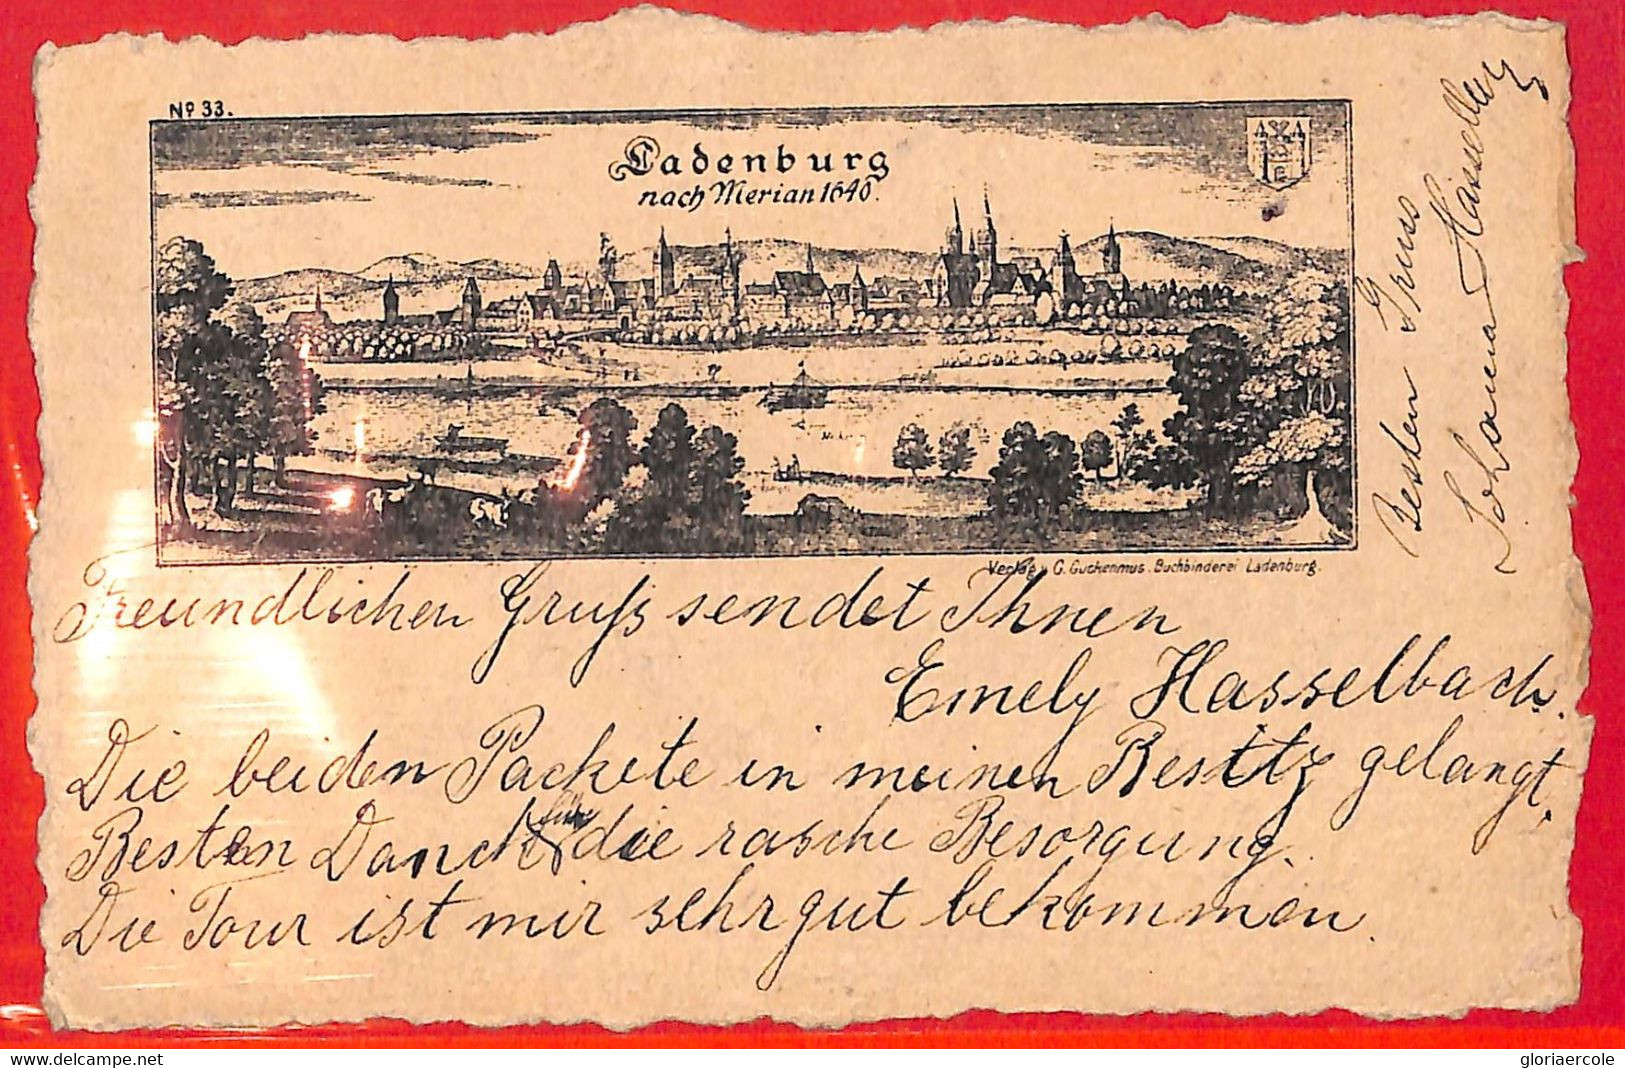 No 33.
Ladenburg
nach Merian 1640.
Verlag v. G. Guckenmus. Buchbinderei Ladenburg.
Besten Gruss
Johanna
Freundlichen Gruß sendet Ihnen
Emely Hasselbach.
Die beiden Packete in meinen Besitz gelangt.
Besten Danck für die rasche Besorgung.
Die Tour ist mir sehr gut bekommen.
gloriaercole
delcampe.net